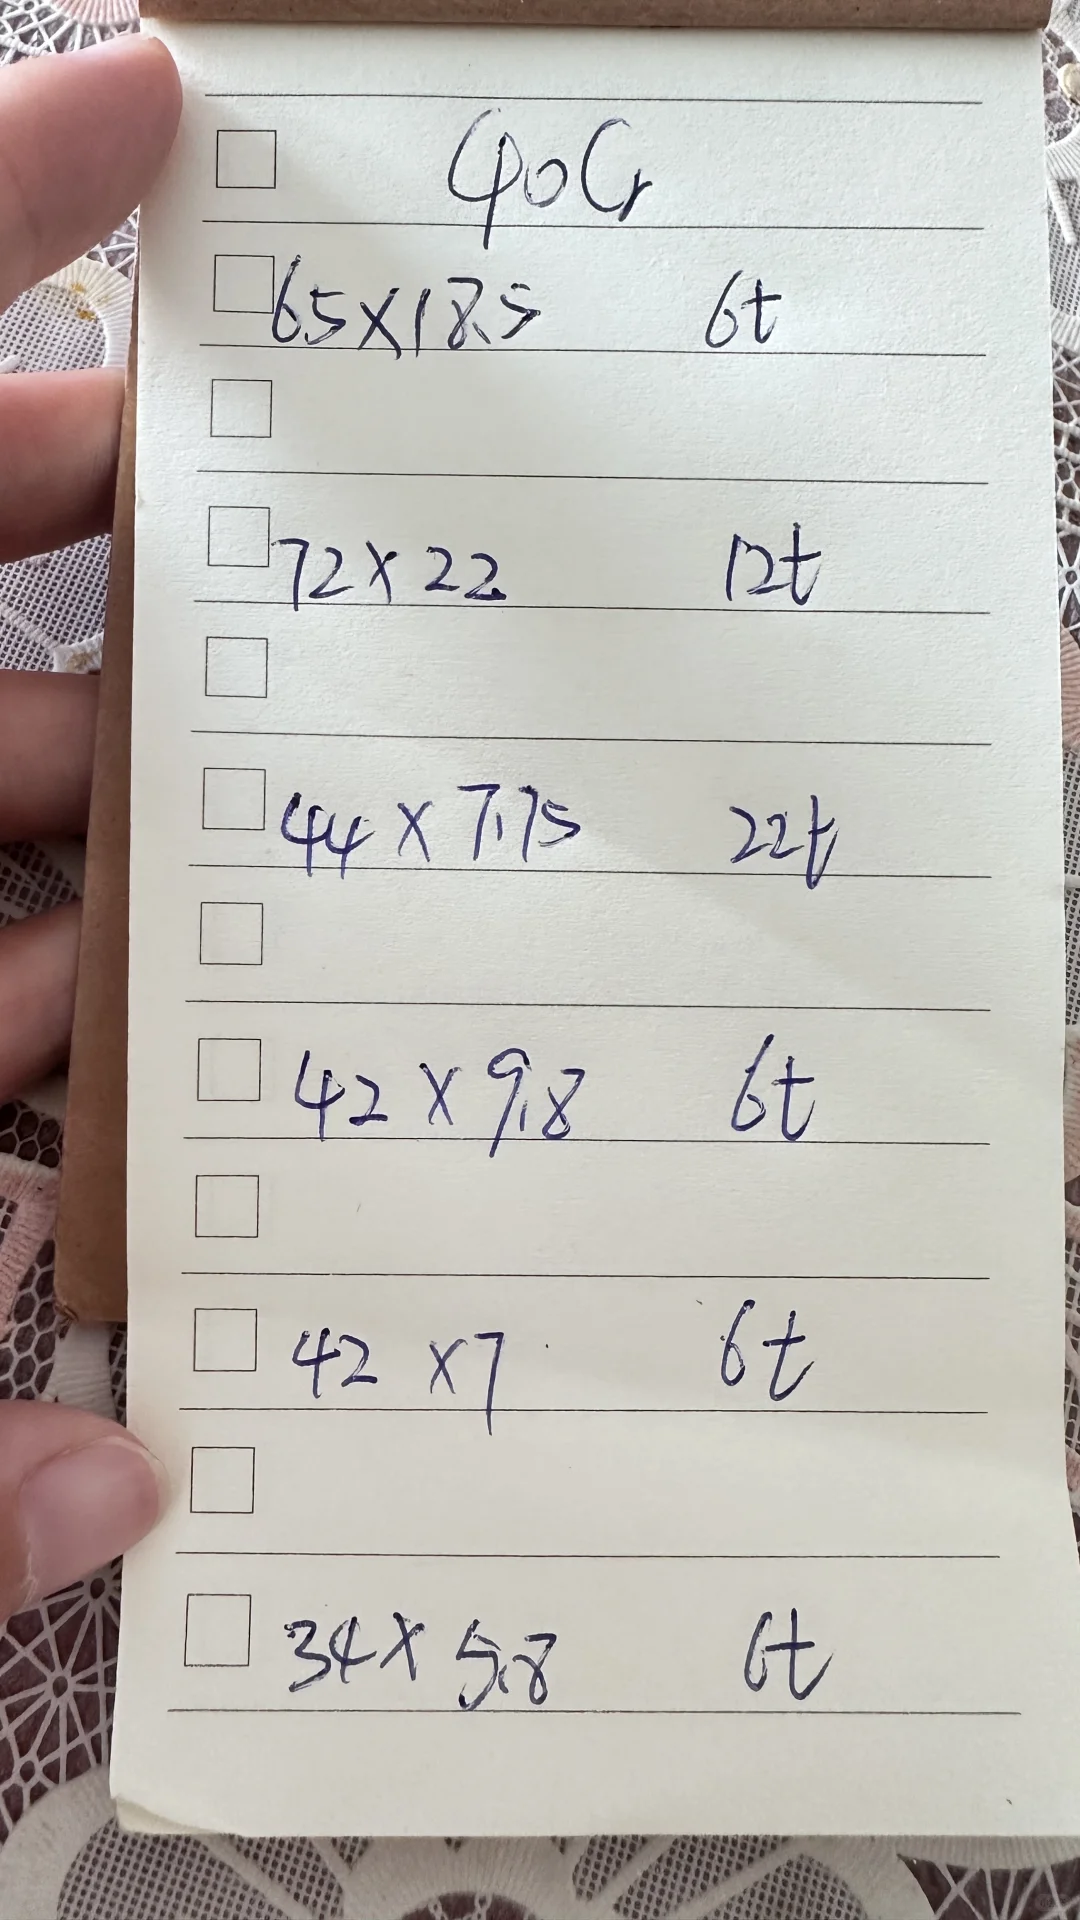 40Cr
65×18.5 6t
72×22 12t
44×7.75 22t
42×9.8 6t
42×7 6t
34×5.8 6t